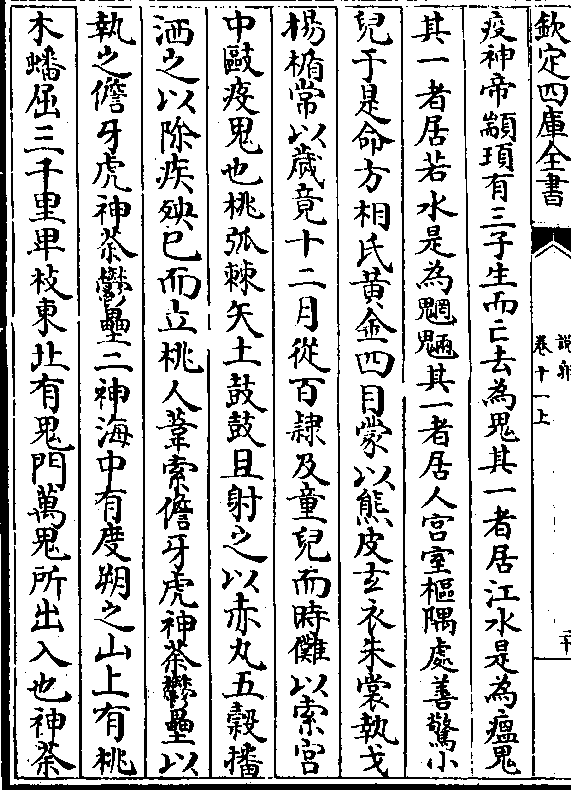 欽定四庫全書
說郛
卷十一上
二十
疫神帝顓頊有三子生而亡去為鬼其一者居江水是為瘟鬼
其一者居若水是為魍魎其一者居人宫室樞隅處善驚小
兒于是命方相氏黄金四目蒙以熊皮玄衣朱裳執戈
楊楯常以歳竟十二月從百隷及童兒而時儺以索宫
中敺疫鬼也桃弧棘矢土鼓鼓且射之以赤丸五榖播
洒之以除疾殃已而立桃人葦索儋牙虎神荼鬱壘以
執之儋牙虎神荼鬱壘二神海中有度朔之山上有桃
木蟠屈三千里卑枝東北有鬼門萬鬼所出入也神荼